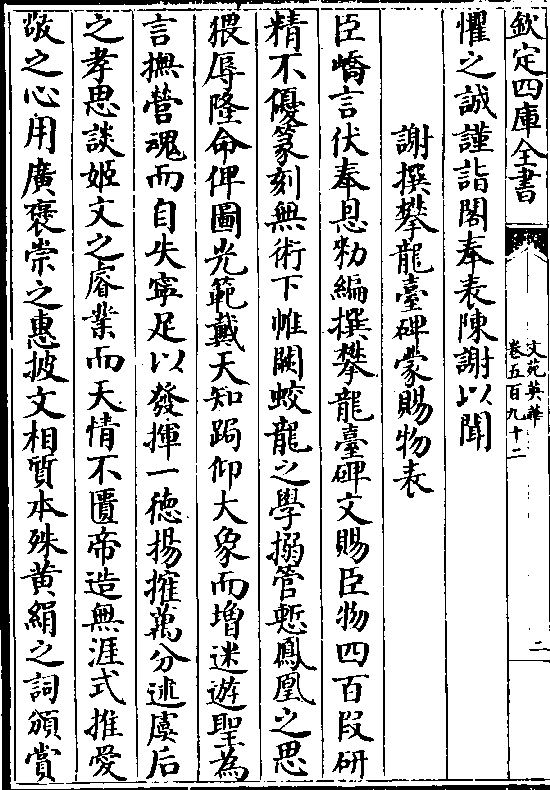 欽定四庫全書
文苑英華
卷五百九十二
二
懼之誠謹詣閣奉表陳謝以聞
謝撰攀龍臺碑蒙賜物表
臣嶠言伏奉恩勑編撰攀龍臺碑文賜臣物四百段研
精不優篆刻無術下帷闕蛟龍之學搦管慙鳳凰之思
猥辱隆命俾圖光範戴天知跼仰大象而增迷遊聖為
言撫營魂而自失寧足以發揮一徳揚搉萬分述虞后
之孝思談姬文之睿業而天情不匱帝造無涯式推愛
敬之心用廣褒崇之惠披文相質本殊黄絹之詞頒賞